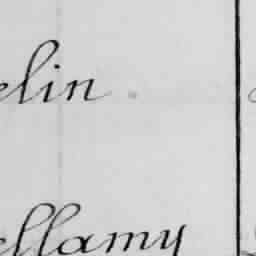 elin
ellamy